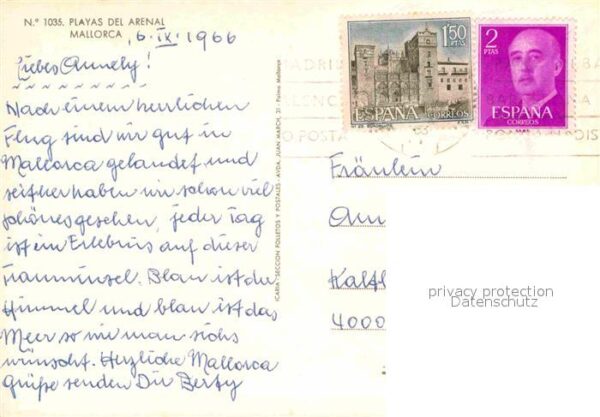 N.º 1035. PLAYAS DEL ARENAL
MALLORCA
6. IX. 1966
Liebes Annely!
Nach einem herrlichen
Flug sind wir gut in
Mallorca gelandet und
seither haben wir schon viel
schönes gesehen, jeder Tag
ist ein Erlebnis auf dieser
Trauminsel. Blau ist der
Himmel und blau ist das
Meer so wie man sichs
wünscht. Herzliche Mallorca
grüße senden Dir Berty
ICARIA-SECCION FOLLETOS Y POSTALES - AVDA. JUAN MARCH,
Palma Mallorca
1'50
PTAS
ESPAÑA
CORREOS
2
PTAS
ESPAÑA
CORREOS
Fräulein
Ann
4000
privacy protection
Datenschutz